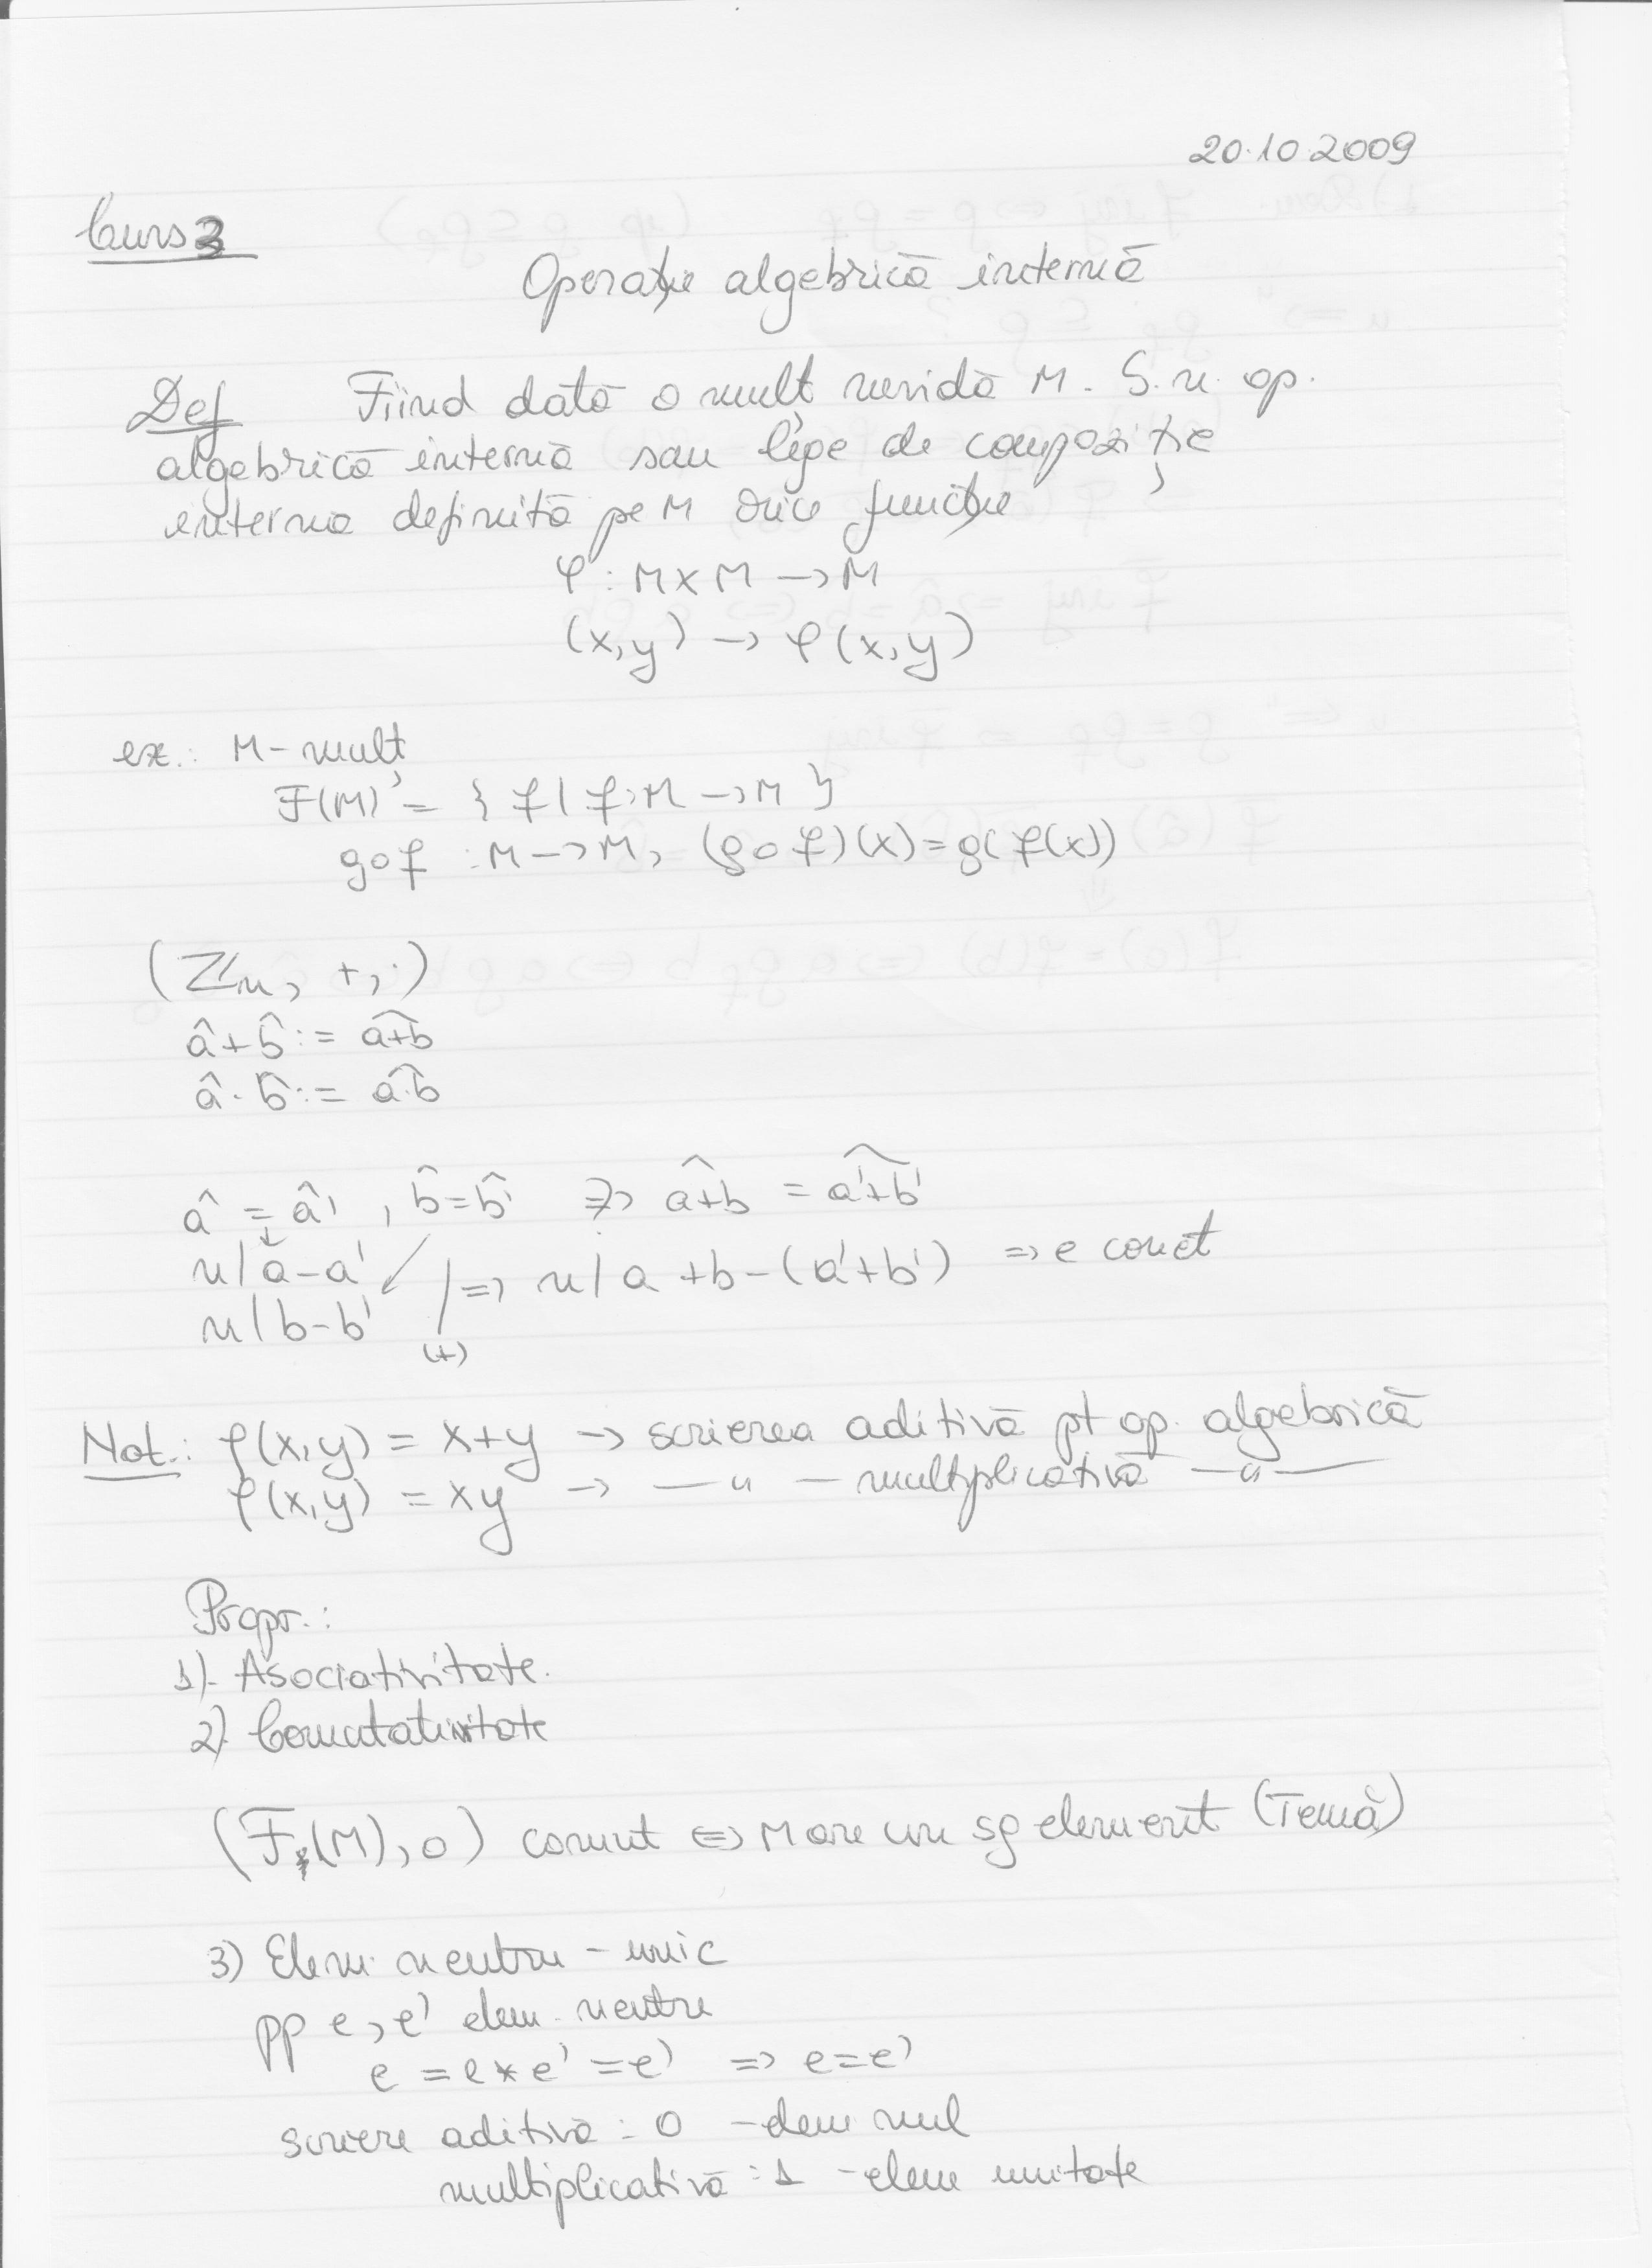 20.10.2009
Curs 3
Operație algebrică internă
Def Fiind dată o mulț nevidă M. S.n. op.
algebrică internă sau lege de compoziție
interna definită pe M orice funcție
φ : M×M → M
(x,y) → φ(x,y)
ex.: M - mulț
F(M) = { f | f: M → M }
g∘f : M → M, (g∘f)(x) = g(f(x))
(ℤn, +, ·)
â + b̂ := \widehat{a+b}
â · b̂ := \widehat{a·b}
â = â', b̂ = b̂' ⇒ \widehat{a+b} = \widehat{a'+b'}
n | a-a'
n | b-b' (+) /⇒ n | a+b-(a'+b') ⇒ e corect
Not.: φ(x,y) = x+y → scrierea aditivă pt op. algebrică
φ(x,y) = xy → —"— multiplicativă —"—
Propr.:
1). Asociativitate.
2). Comutativitate
(F(M), ∘) comut ⇔ M are un sg element (Temă)
3) Elem. neutru - unic
pp e, e' elem. neutre
e = e * e' = e' ⇒ e = e'
scriere aditivă : 0 - elem nul
multiplicativă : 1 - elem unitate